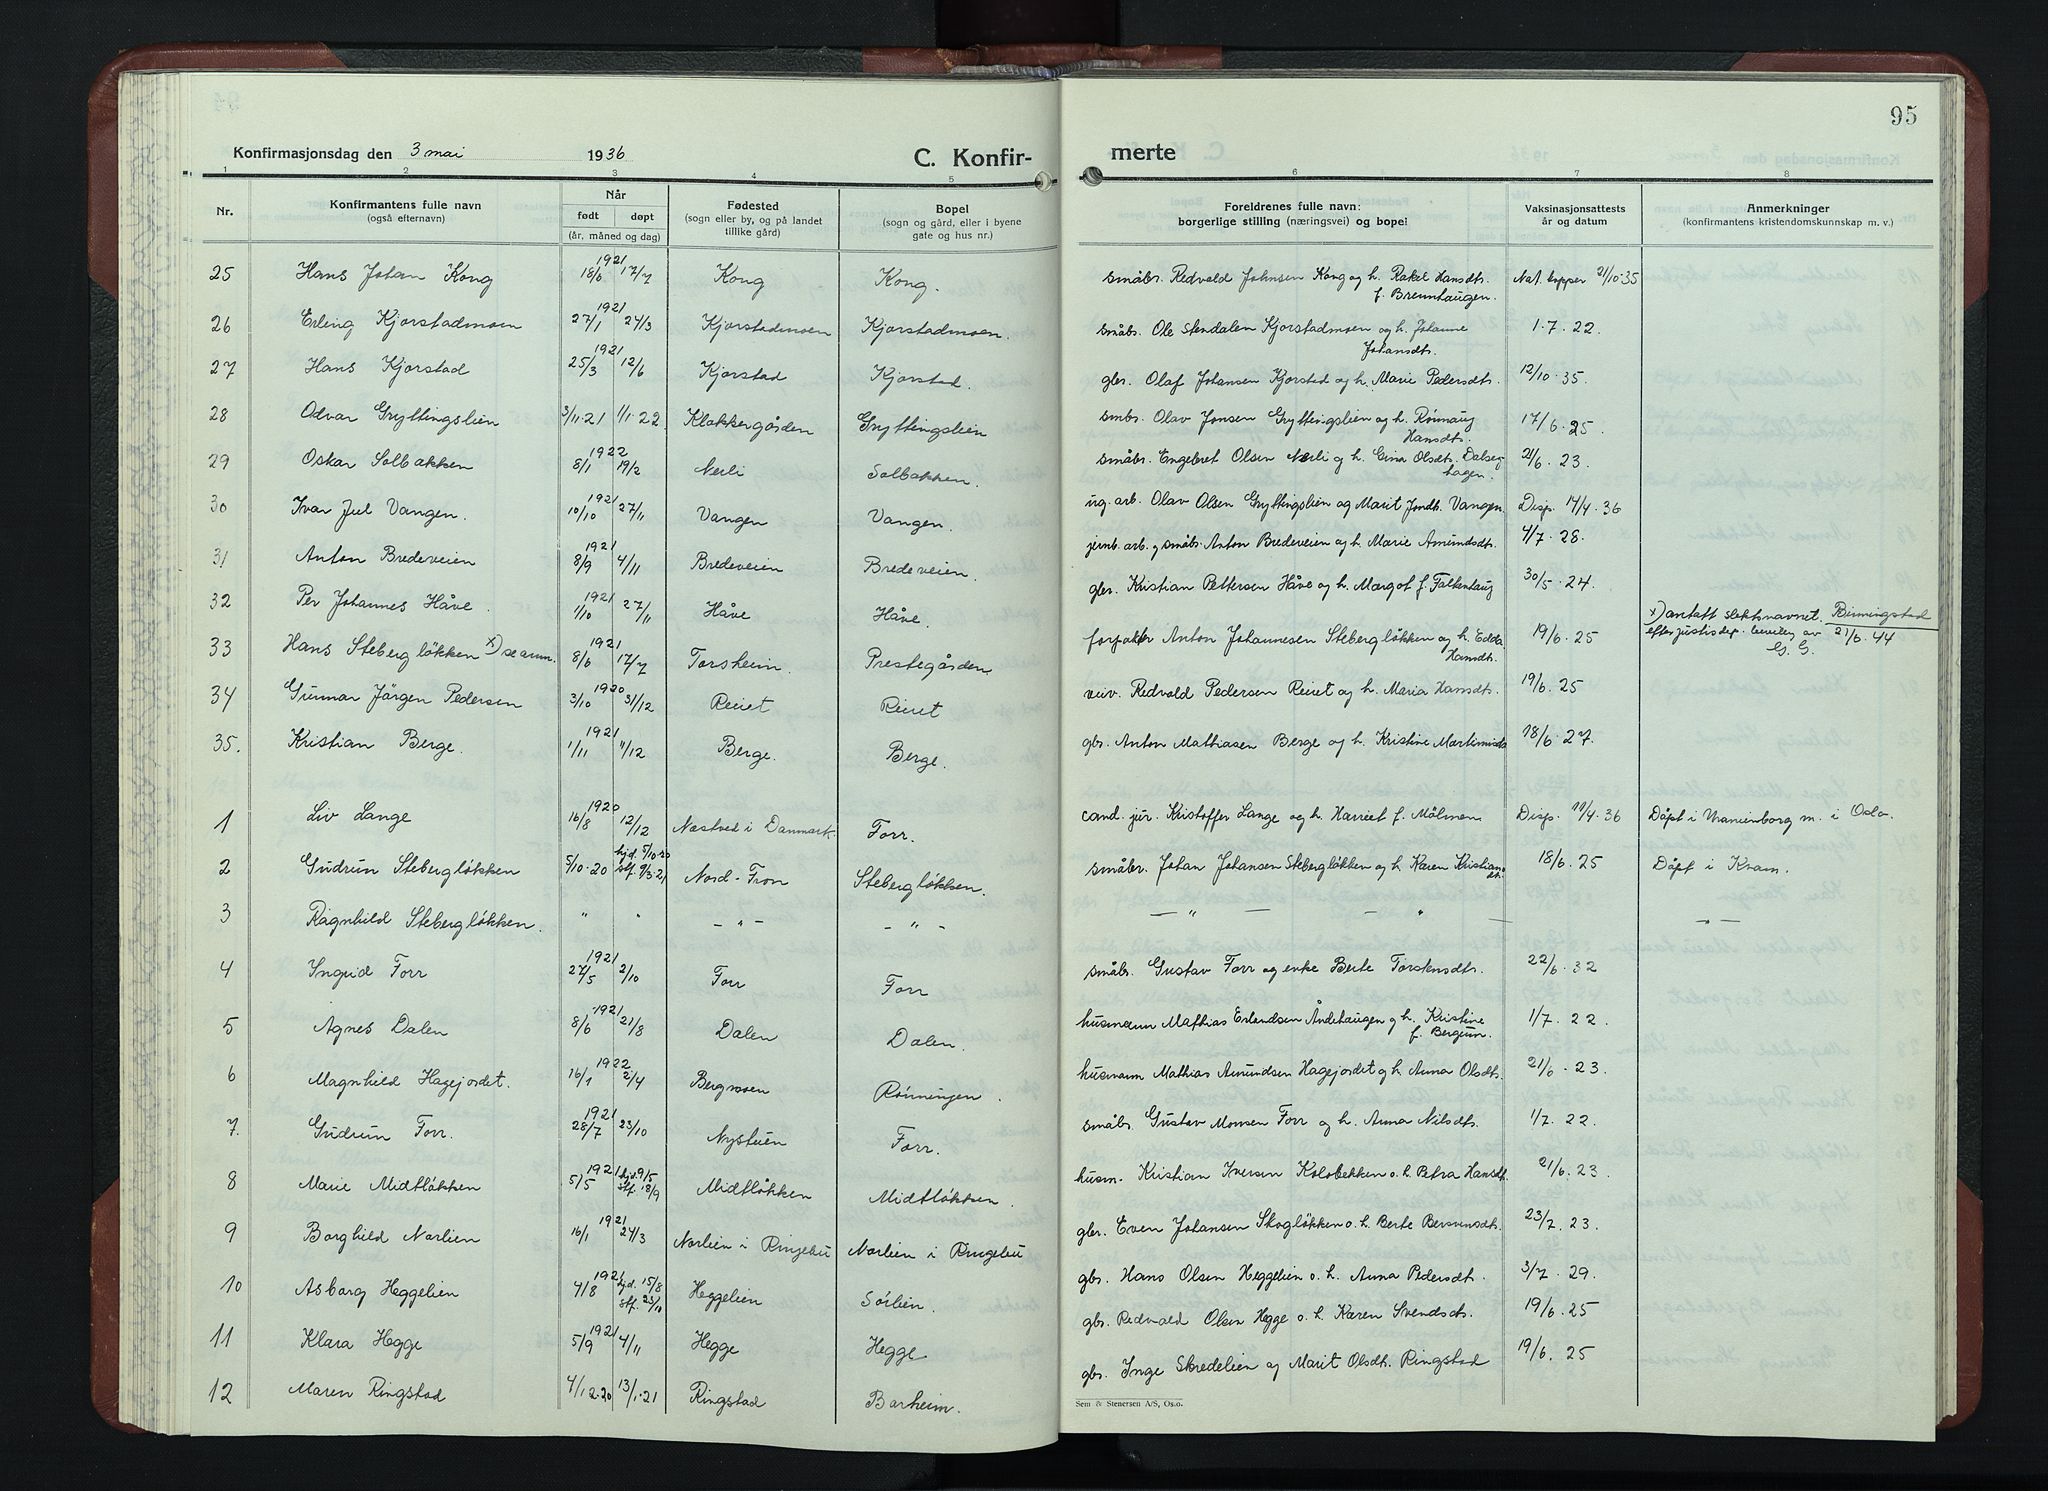 95
Konfirmasjonsdag den 3 mai 1936 C. Konfir-
merte
1 2 3 4 5 6 7 8
Nr.
Konfirmantens fulle navn
(også efternavn)
Når
født døpt
(år, måned og dag)
Fødested
(sogn eller by, og på landet
tillike gård)
Bopel
(sogn og gård, eller i byene
gate og hus nr.)
Foreldrenes fulle navn:
borgerlige stilling (næringsvei) og bopel
Vaksinasjonsattests
år og datum
Anmerkninger
(konfirmantens kristendomskunnskap m. v.)
25 Hans Johan Kong 1921 18/6 17/7 Kong Kong. småbr. Redvald Johnsen Kong og h. Rakel Hansdt. Nat. kopper 21/10-35
f. Brennhaugen.
26 Erling Kjorstadmoen 1921 27/1 24/3 Kjorstadmoen Kjorstadmoen. småb. Ole Stendalen Kjorstadmoen og h. Johanne 1.7.22.
Johansdt.
27 Hans Kjorstad 1921 25/3 12/6 Kjorstad Kjorstad. gbr. Olaf Johansen Kjorstad og h. Marie Pedersdt. 12/10.35.
28 Odvar Gryttingslien 3/11-21 1/1-22 Klokkergården Gryttingslien smbr. Olav Jonsen Gryttingslien og h. Rønnaug 17/6.25.
Hansdt.
29 Oskar Solbakken 1922 8/1 19/2 Nerli Solbakken. småbr. Engebret Olsen Nerli og h. Gina Olsdt. Dalseg- 21/6.23.
hagen.
30 Ivar Jul Vangen. 1921 10/10 27/11 Vangen Vangen. ug. arb. Olav Olsen Gryttingslien og Marit Jondt. Vangen Disp. 14/4.36
31 Anton Bredeveien 1921 8/9 4/11 Bredeveien Bredeveien. jernb. arb. og småb. Anton Bredeveien og h. Marie Amundsdt. 4/7.28.
32 Per Johannes Håve. 1921 1/10 27/11 Håve Håve. gbr. Kristian Pettersen Håve og h. Margot f. Falkenhaug 30/5.24
33 Hans Stebergløkken x) se anm. 1921 8/6 17/7 Forsheim. Prestegården forpakter Anton Johannesen Stebergløkken og h. Edda 19/6.25
Hansdt.
x) antatt slektsnavnet
efter justisdep. bevilg. av 21/6.44
G. G.
34 Gunnar Jørgen Pedersen 1920 3/10 31/12 Reiret Reiret veiv. Redvald Pedersen Reiret og h. Maria Hansdt. 19/6.25
35. Kristian Berge. 1921 1/11 11/12 Berge. Berge. gbr. Anton Mathiasen Berge og h. Kristine Martinusdt. 18/6.27.
1 Liv Lange 1920 16/8 12/12 Næstved i Danmark. Forr. cand. jur. Kristoffer Lange og h. Harriet f. Mölmen Disp. 17/4.36 Døpt i Uranienborg m. i Oslo.
2 Gudrun Stebergløkken 5/10-20 hjd. 5/10-20 stf. 9/3-21 Nord-Fron Stebergløkken. småbr. Johan Johansen Stebergløkken og h. Karen Kristians- 18/6.25 Døpt i Kvam.
dt.
3 Ragnhild Stebergløkken. " " - " - - " - - " - - " - - " -
4 Ingrid Forr 1921 27/5 2/10 Forr Forr småb. Gustav Forr og enke Berte Torstensdt. 22/6.32
5 Agnes Dalen 1921 8/6 21/8 Dalen Dalen. husmann Mathias Erlandsen Åndehaugen og h. Kristine 1/7.22.
f. Bergum.
6 Magnhild Hagejordet. 1922 16/1 2/4 Bergmoen Rönningen. husmann Mathias Amundsen Hagejordet og h. Anna Olsdt. 21/6.23.
7. Gudrun Forr. 1921 28/7 23/10 Nystuen Forr. småbr. Gustav Monsen Forr og h. Anna Nilsdt. 1/7.22.
8 Marie Midtløkken 1921 5/5 hjd. 9/5 stf. 18/9 Midtløkken Midtløkken. husm. Kristian Iversen Kolobekken o. h. Petra Hansdt. 21/6.23
9 Borghild Norlien 1921 16/1 24/3 Norlien i Ringebu Norlien i Ringebu gbr. Even Johansen Skogløkken o. h. Berte Bersvensdt. 23/7.23.
10 Asborg Heggelien 1921 4/8 hjd. 15/8 stf. 23/10 Heggelien Sörlien. gbr. Hans Olsen Heggelien o. h. Anna Pedersdt. 3/7.29.
11 Klara Hegge 1921 5/9 4/11 Hegge Hegge gbr. Redvald Olsen Hegge o. h. Karen Svendsdt. 19/6.25
12 Maren Ringstad 4/12-20 13/1-21 Ringstad Barheim. gbr. Inge Skredelien og Marit Olsdt. Ringstad 19/6.25
Sem & Stenersen A/S, Oslo.